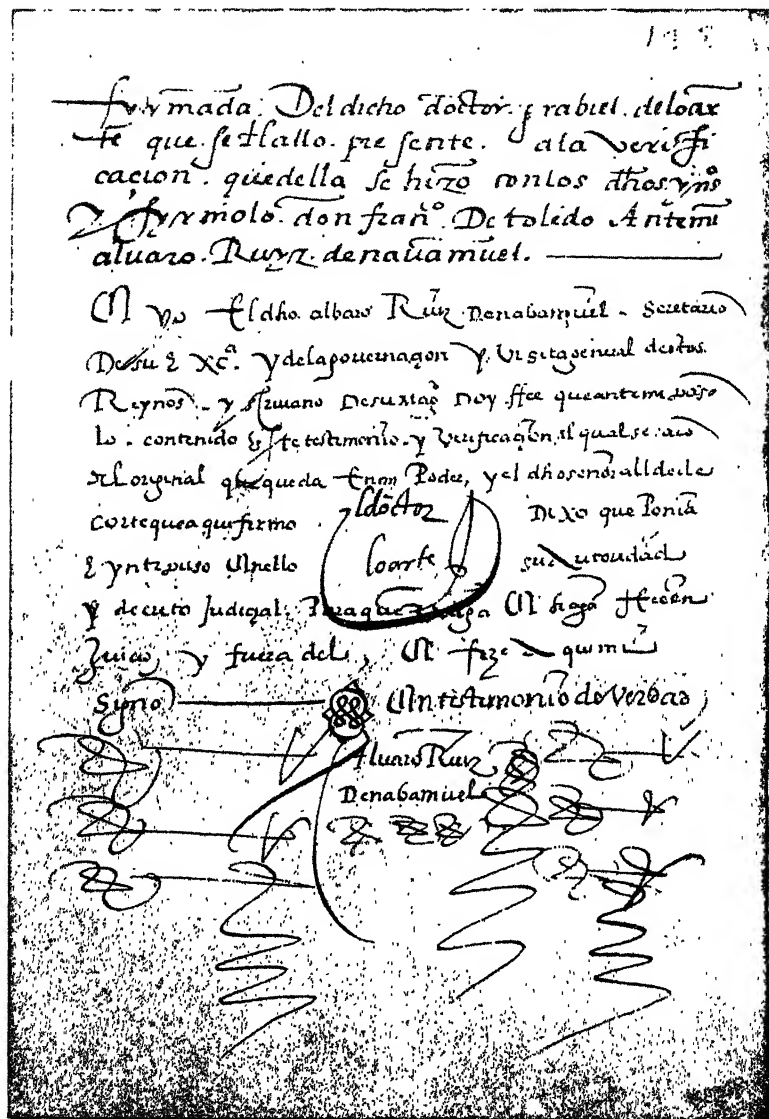 fyrmada. Del dicho doctor. grabiel. de loar
te que. se hallo. presente. a la verifi
cacion. que della se hizo con los dhos yn^os
y fyrmolo. don fran^o. De toledo Ante mi
aluaro. Ruyz. de nauamuel.
yo El dho. albaro Ruiz Denabamuel. Secretario
De su Ex^a. y de la gouernaçon y Visita general destos
Reynos. y escriuano De su mag^d Doy ffee que ante mi paso
lo. contenido En este testimonio. y Verificaçon, el qual se saco
del original que queda En mi Poder, y el dho señor allde de
corte que aqui firmo Dixo que Ponia
E ynterpuso En ello su autoridad
el doctor
loarte
y decreto Judiçial. Para que valga E haga ffee en
Juiçio y fuera del, E fize aqui mi
Syno En testimonio de Verdad
Aluaro Ruiz
Denabamuel